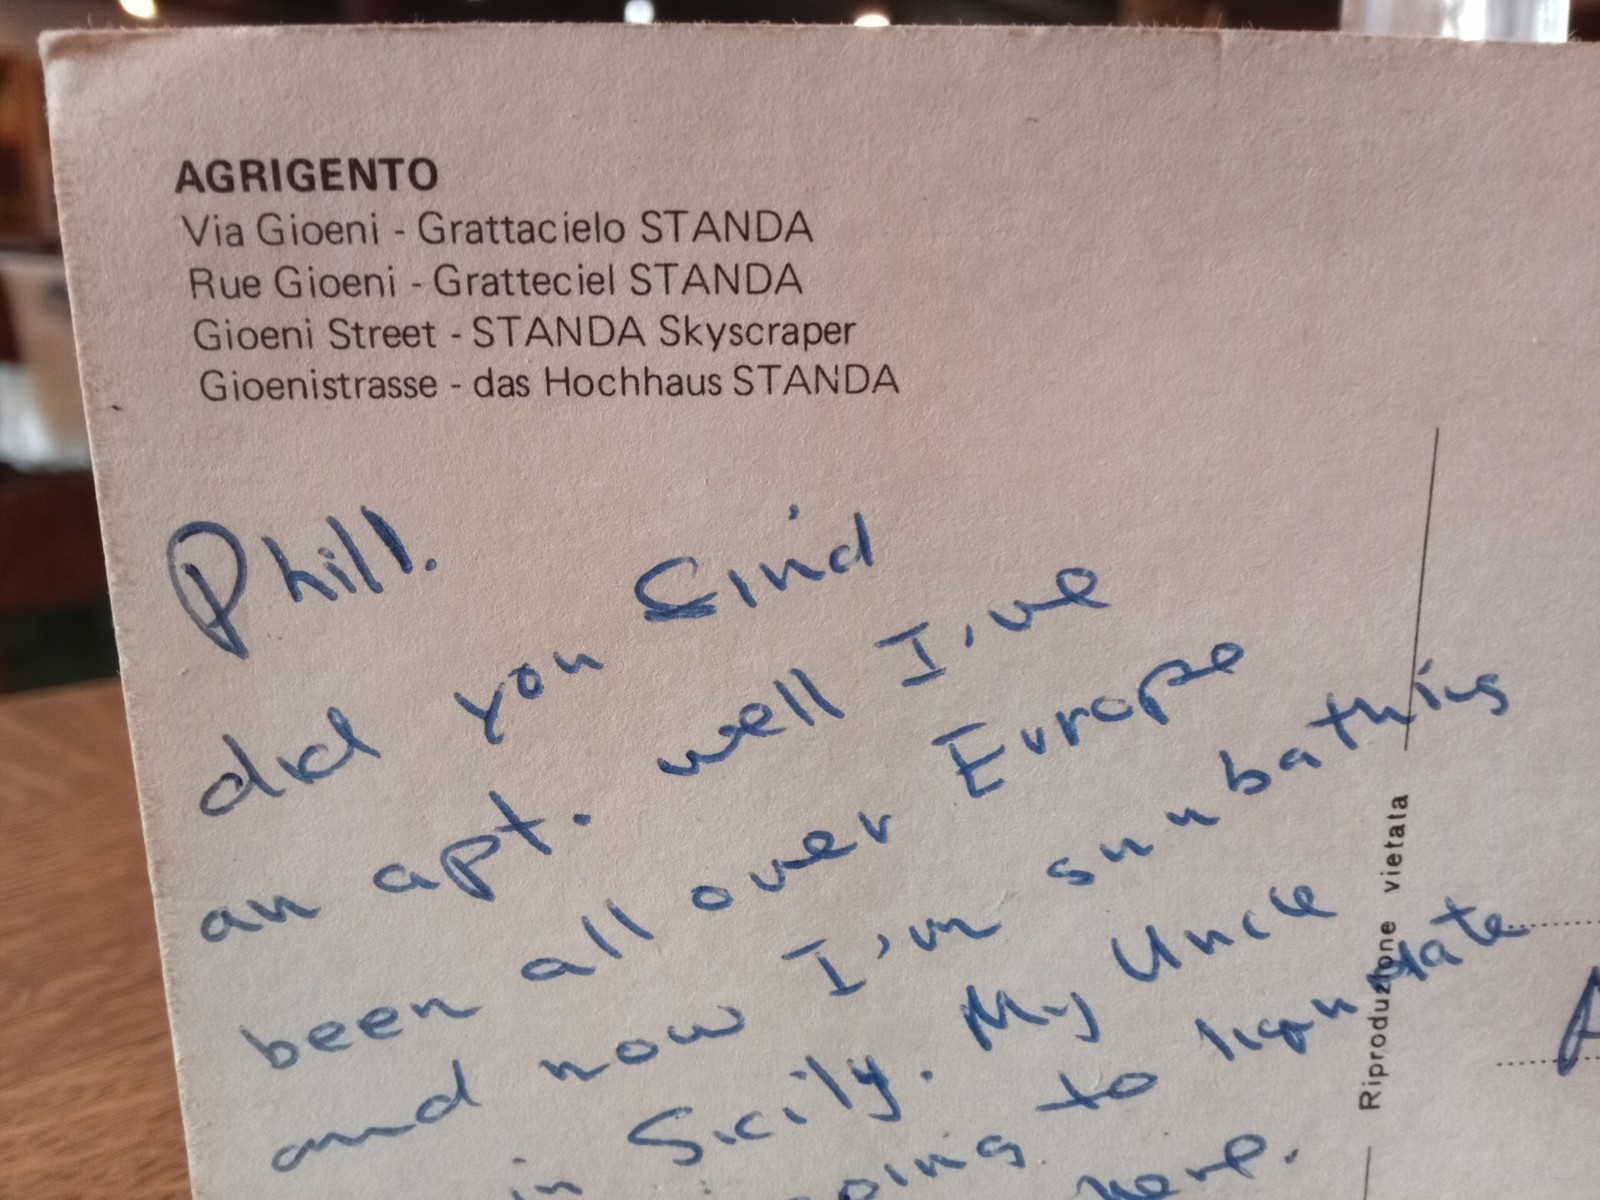 AGRIGENTO
Via Gioeni - Grattacielo STANDA
Rue Gioeni - Gratteciel STANDA
Gioeni Street - STANDA Skyscraper
Gioenistrasse - das Hochhaus STANDA
Phill.
did you find
an apt. well I've
been all over Europe
and now I'm sunbathing
in Sicily. My Uncle
going to liquidate
here.
Riproduzione vietata
A